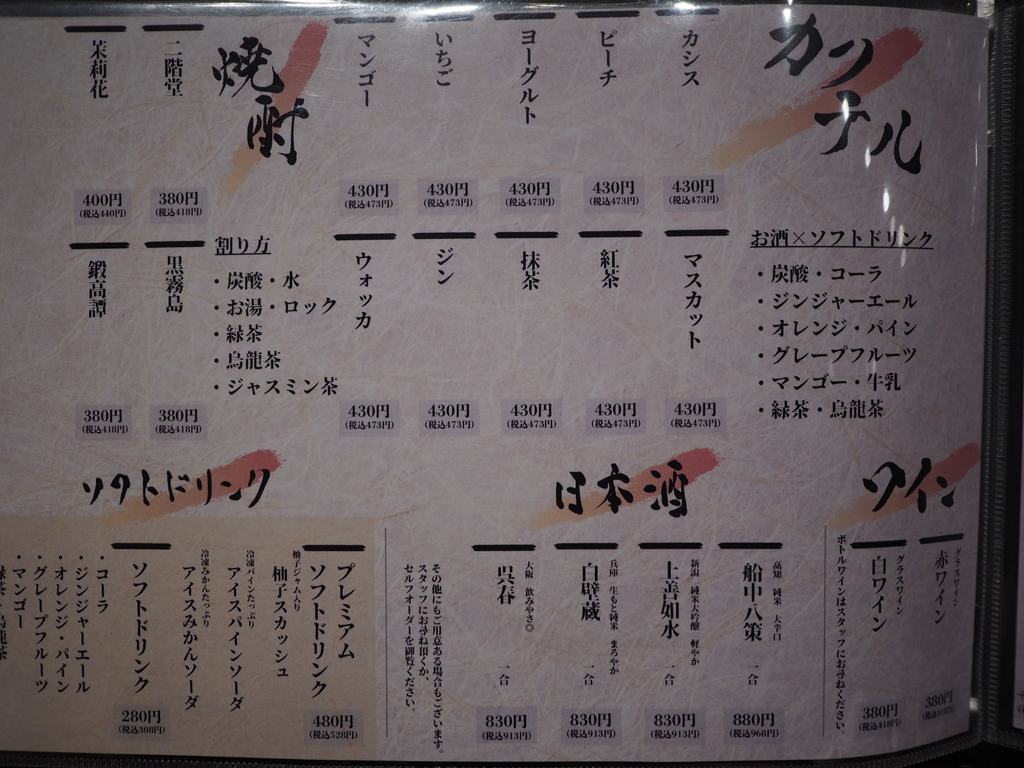 カクテル
お酒×ソフトドリンク
・炭酸・コーラ
・ジンジャーエール
・オレンジ・パイン
・グレープフルーツ
・マンゴー・牛乳
・緑茶・烏龍茶
カシス
430円
(税込473円)
ピーチ
430円
(税込473円)
ヨーグルト
430円
(税込473円)
いちご
430円
(税込473円)
マンゴー
430円
(税込473円)
マスカット
430円
(税込473円)
紅茶
430円
(税込473円)
抹茶
430円
(税込473円)
ジン
430円
(税込473円)
ウォッカ
430円
(税込473円)
焼酎
割り方
・炭酸・水
・お湯・ロック
・緑茶
・烏龍茶
・ジャスミン茶
二階堂
380円
(税込418円)
茉莉花
400円
(税込440円)
黒霧島
380円
(税込418円)
鍛高譚
380円
(税込418円)
ワイン
グラスワイン
赤ワイン
380円
(税込418円)
グラスワイン
白ワイン
380円
(税込418円)
ボトルワインはスタッフにお尋ねください。
日本酒
高知 純米 大辛口
船中八策 一合
880円
(税込968円)
新潟 純米大吟醸 軽やか
上善如水 一合
830円
(税込913円)
兵庫 生もと純米 まろやか
白壁蔵 一合
830円
(税込913円)
大阪 飲みやさ◎
呉春 一合
830円
(税込913円)
その他にもご用意ある場合もございます。
スタッフにお尋ね頂くか、
セルフオーダーを御覧ください。
ソフトドリンク
プレミアム
ソフトドリンク
480円
(税込528円)
柚子ジャム入り
柚子スカッシュ
冷凍パインたっぷり
アイスパインソーダ
冷凍みかんたっぷり
アイスみかんソーダ
ソフトドリンク
280円
(税込308円)
・コーラ
・ジンジャーエール
・オレンジ・パイン
・グレープフルーツ
・マンゴー